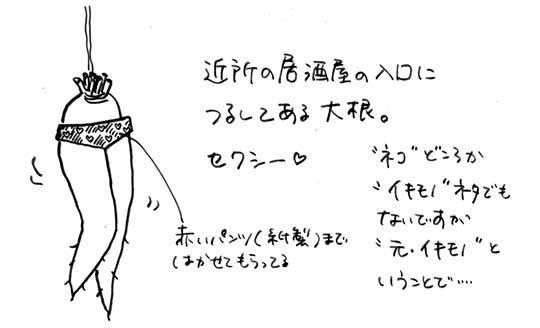 近所の居酒屋の入口に
つるしてある大根。
セクシー♡
赤いパンツ(紙製)まで
はかせてもらってる
"ネコ"どころか
"イキモノ"ネタでも
ないですが
"元・イキモノ"と
いうことで……